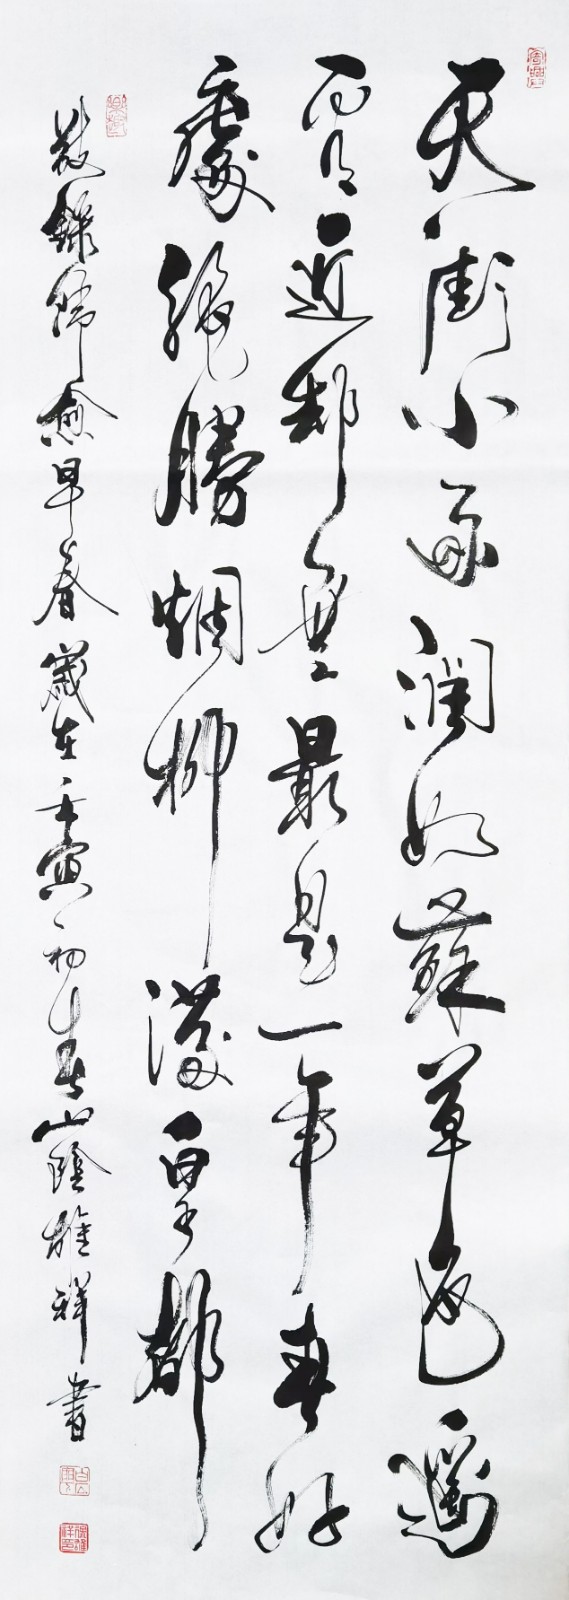 天街小雨潤如蘇草色遙
看近却無最是一年春好
處絕勝烟柳滿皇都
敬錄韓愈早春歲在壬寅初春山陰雄祥書